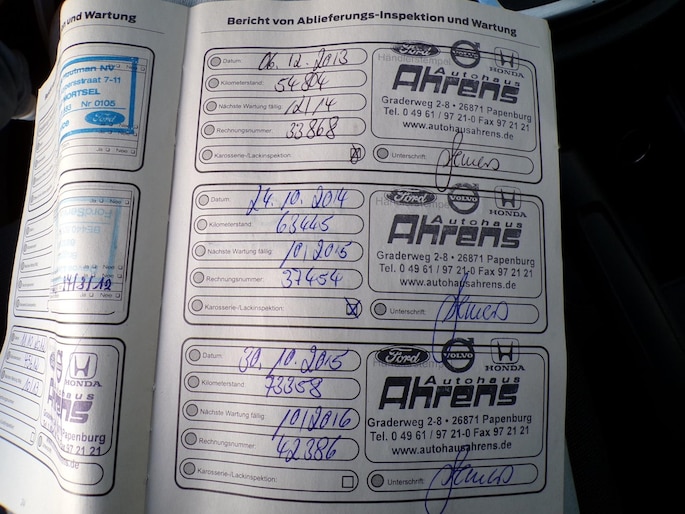 und Wartung
utman NV
straat 7-11
MORTSEL
Nr 0105
Ford
Ja Nee
14/3/12
HONDA
Papenburg
97 21 21
ens.de
Bericht von Ablieferungs-Inspektion und Wartung
Datum: 06.12.2013
Kilometerstand: 54804
Nächste Wartung fällig: 12/14
Rechnungsnummer: 33868
Karosserie-/Lackinspektion:
Ford VOLVO HONDA
Autohaus
Ahrens
Graderweg 2-8 • 26871 Papenburg
Tel. 0 49 61 / 97 21-0 Fax 97 21 21
www.autohausahrens.de
Unterschrift:
Datum: 24.10.2014
Kilometerstand: 63445
Nächste Wartung fällig: 10/2015
Rechnungsnummer: 37454
Karosserie-/Lackinspektion:
Ford VOLVO HONDA
Autohaus
Ahrens
Graderweg 2-8 • 26871 Papenburg
Tel. 0 49 61 / 97 21-0 Fax 97 21 21
www.autohausahrens.de
Unterschrift:
Datum: 30.10.2015
Kilometerstand: 73358
Nächste Wartung fällig: 10/2016
Rechnungsnummer: 42386
Karosserie-/Lackinspektion:
Ford VOLVO HONDA
Autohaus
Ahrens
Graderweg 2-8 • 26871 Papenburg
Tel. 0 49 61 / 97 21-0 Fax 97 21 21
www.autohausahrens.de
Unterschrift: